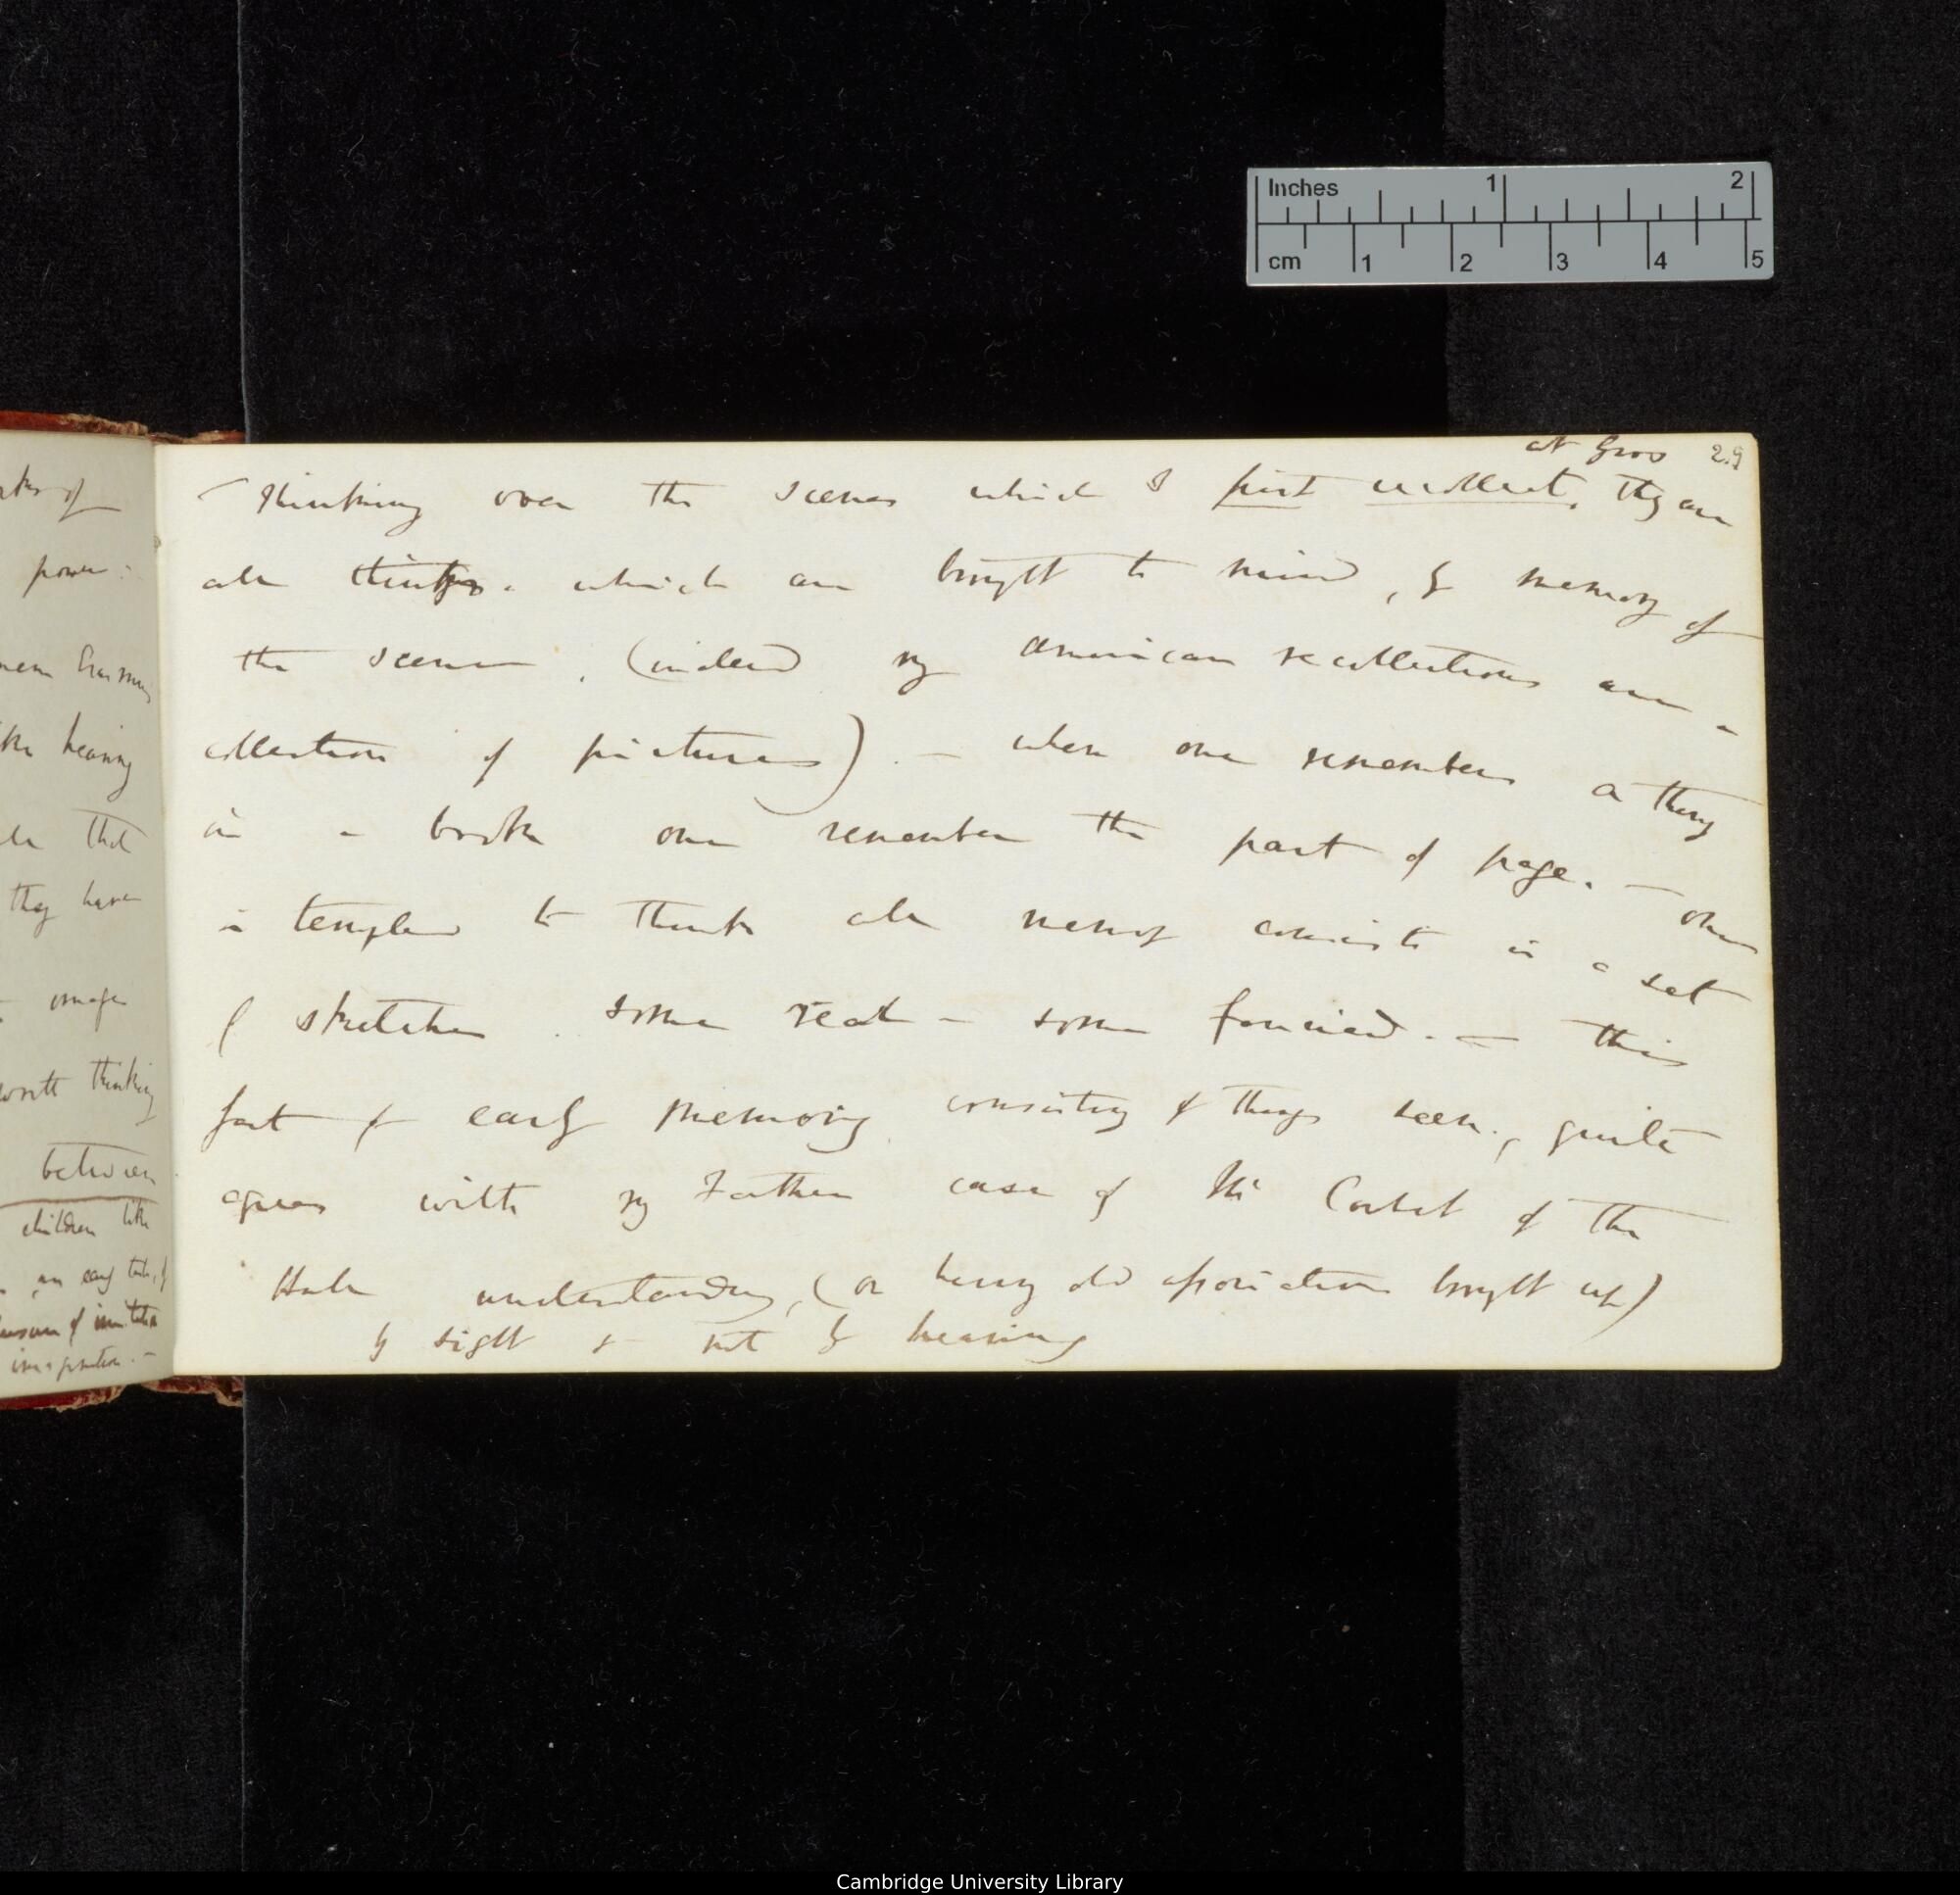 Inches 1 2
cm 1 2 3 4 5
at Zoo 29
Thinking over the scenes which I first recollect, they are
all things. which are brought to mind, by memory of
the scenes, (indeed my American recollections are a
collection of pictures). — when one remembers a thing
in a book one remember the part of page. — one
is tempted to think all memory consists in a set
of sketches. some real — some fancied. — this
fact of early memory consisting of things seen., quite
agrees with my Father case of Mr Corbet of the
Hall understanding, (or having old association brought up)
by sight & not by hearing
power.
hearing
that
they have
worth thinking
between
children like
an early
of imitation
imagination. —
Cambridge University Library